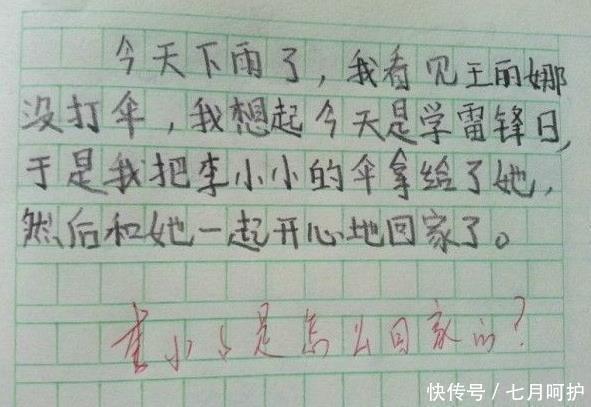 今天下雨了，我看见王丽娜
没打伞，我想起今天是学雷锋日，
于是我把李小小的伞拿给了她，
然后和她一起开心地回家了。
李小小是怎么回家的？
快传号／七月呵护